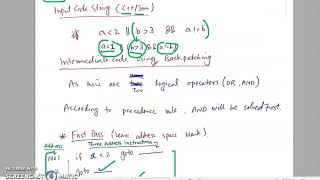 Input Code String (C++/Java)
if a<2 || b>3 && a!=b
a<2 || b>3 && a!=b
Intermediate code using Backpatching
As there are Two logical operators (OR, AND)
According to precedence rule, AND will be solved first.
* First Pass (Leave address space blank)
Address Three Address Instruction
No1 if a<2 goto
goto
RECORDED WITH
SCREENCAST MATIC